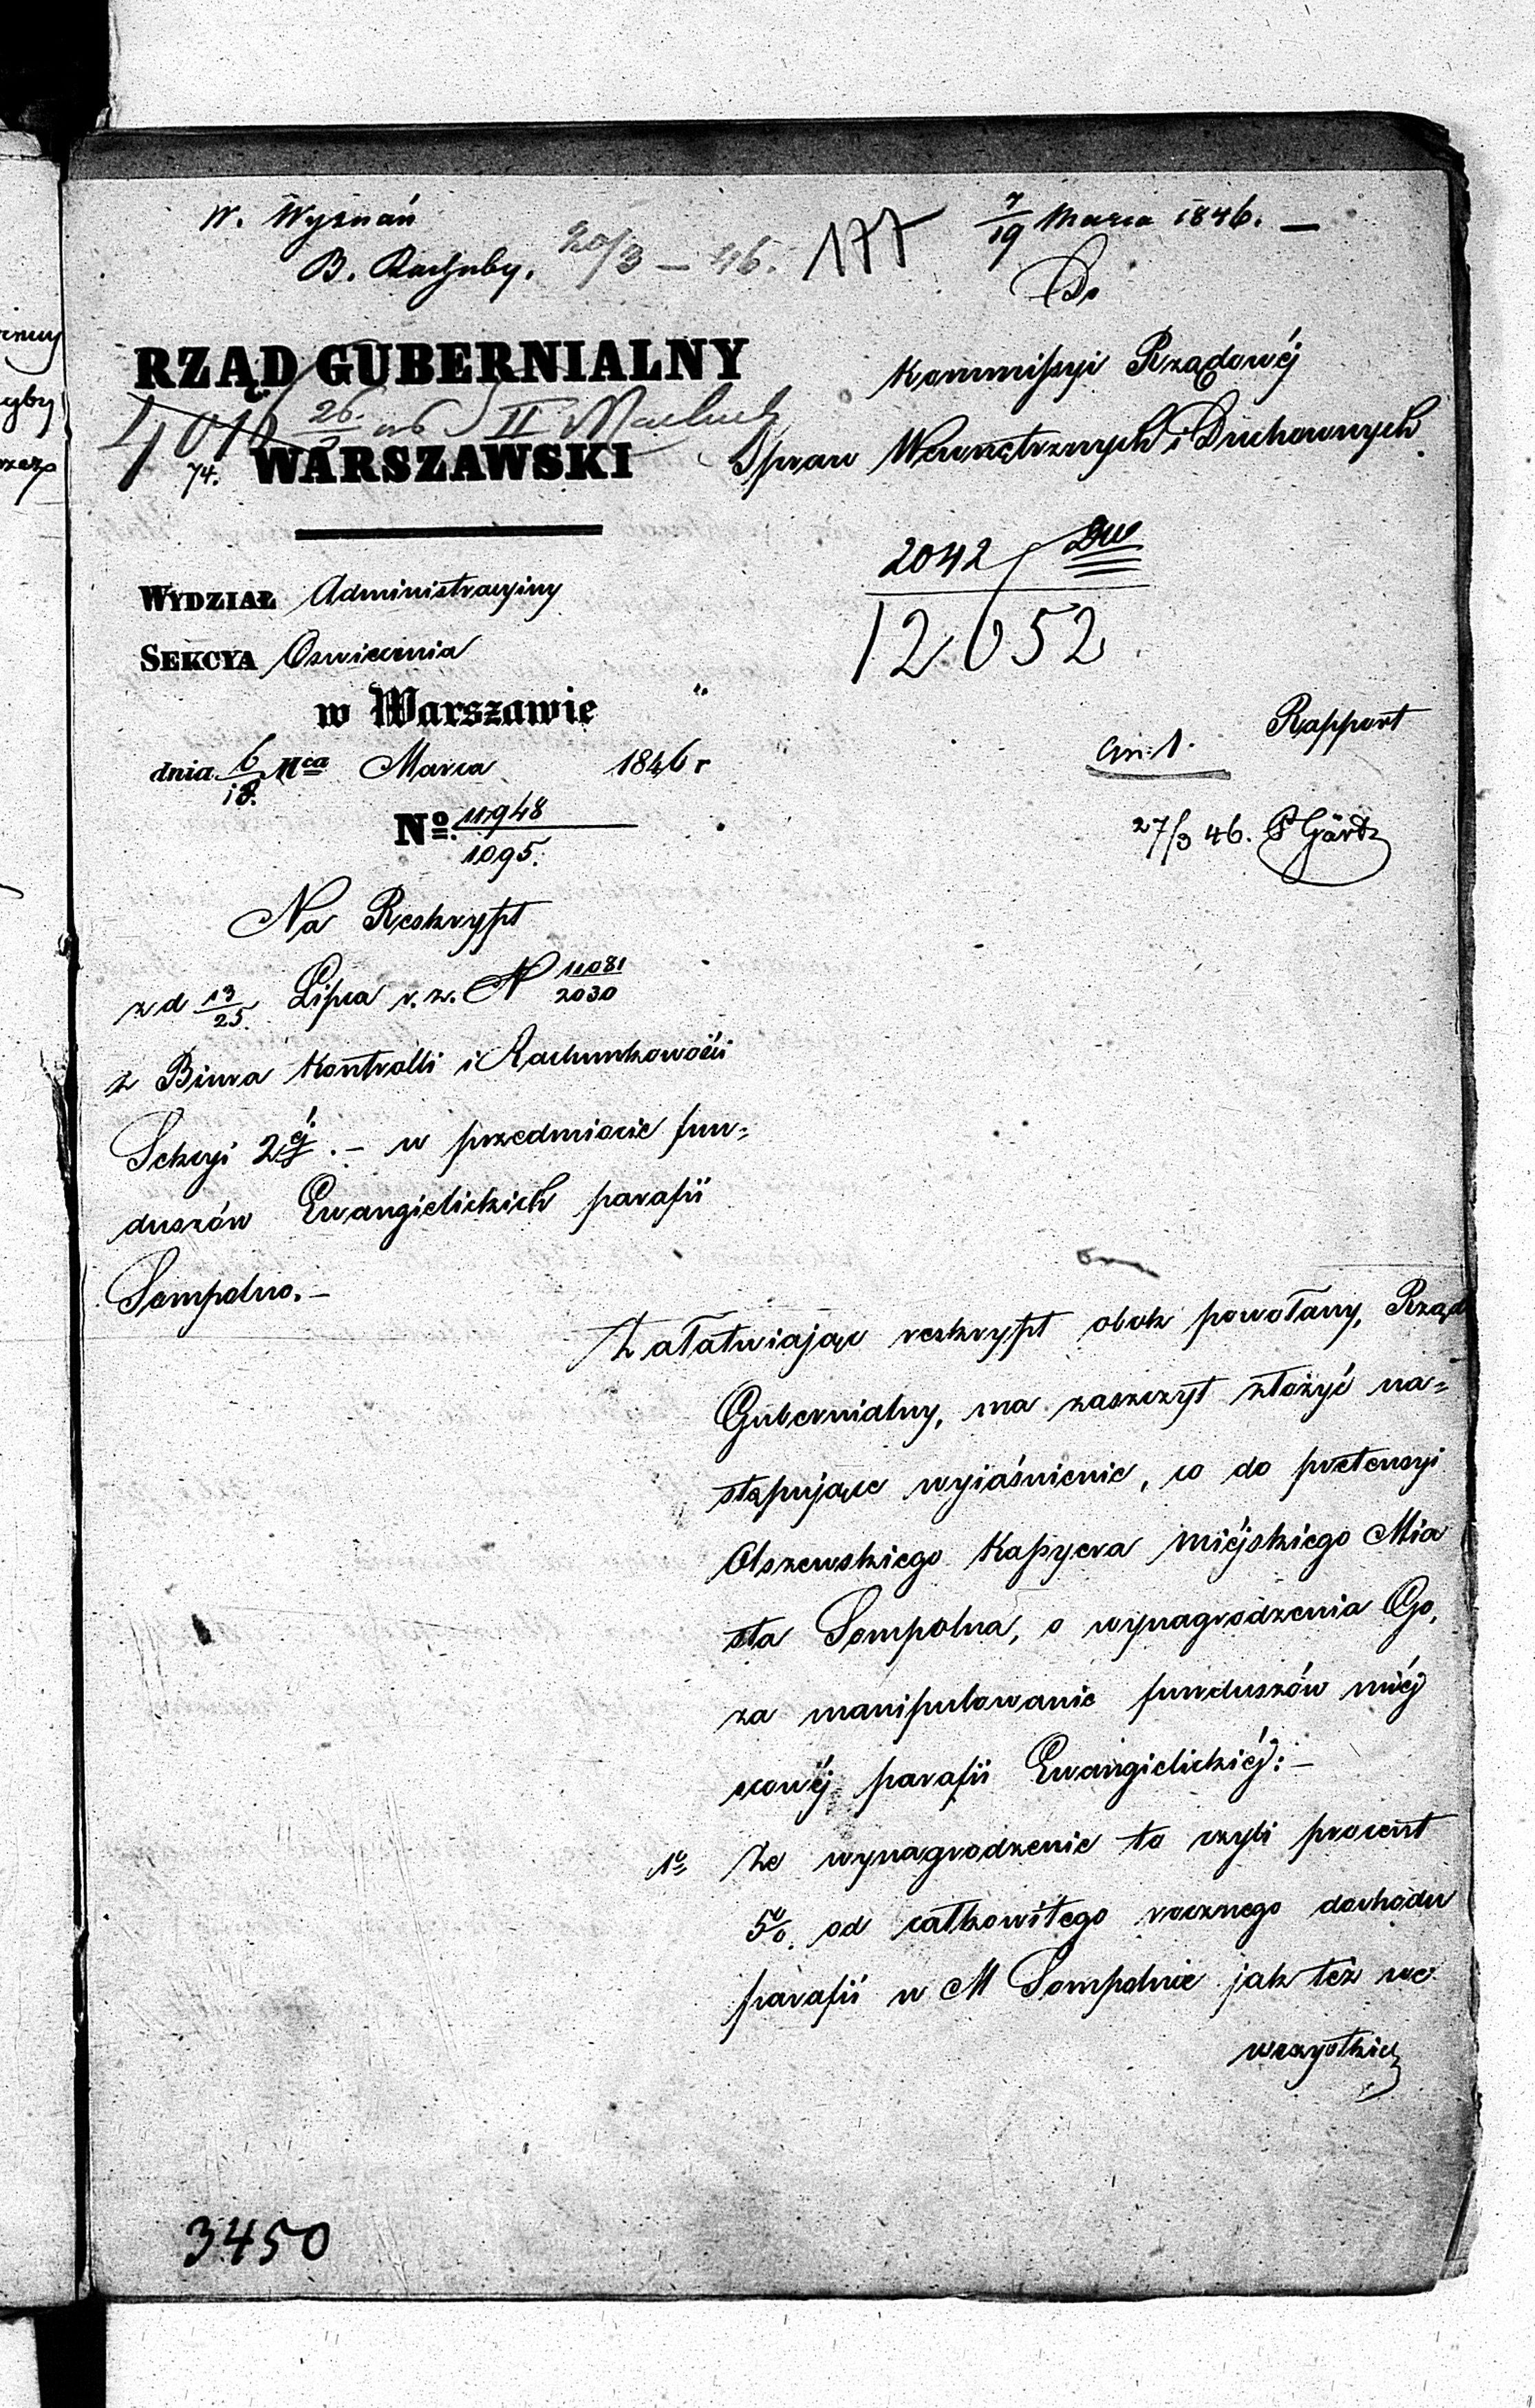 W. Wyznań
B. Rachuby. 20/3 – 46.
177
7/19 Marca 1846. –
Do
Kommissyi Rządowéj
Spraw Wewnętrznych i Duchownych.
RZĄD GUBERNIALNY
WARSZAWSKI
74.
2042
12652
WYDZIAŁ Administracyiny
SEKCYA Oswiecenia
w Warszawie
dnia 6/18. Mca Marca 1846 r
Rapport
No. 11948/1095.
27/3 46. Gärtz
Na Reskrypt
z d 13/25. Lipca r. z. N 11081/2030
z Biura Kontrolli i Rachunkowości
Sekcyi 2éj. – w przedmiocie fun=
duszów Ewangielickich parafii
Sompolno. –
Załatwiając reskrypt obok powołany, Rząd
Gubernialny, ma zaszczyt złożyć na=
stępujące wyiaśnienie, co do pretensyi
Olszewskiego Kassyera Miéjskiego Mia
sta Sompolna, o wynagrodzenia Go,
za manipulowanie funduszów miéj
scowéj parafii Ewangielickiéj: –
1o Że wynagrodzenie to czyli procent
5%. od całkowitego rocznego dochodu
parafii w M Sompolnie jak też we
wszystkich
3450